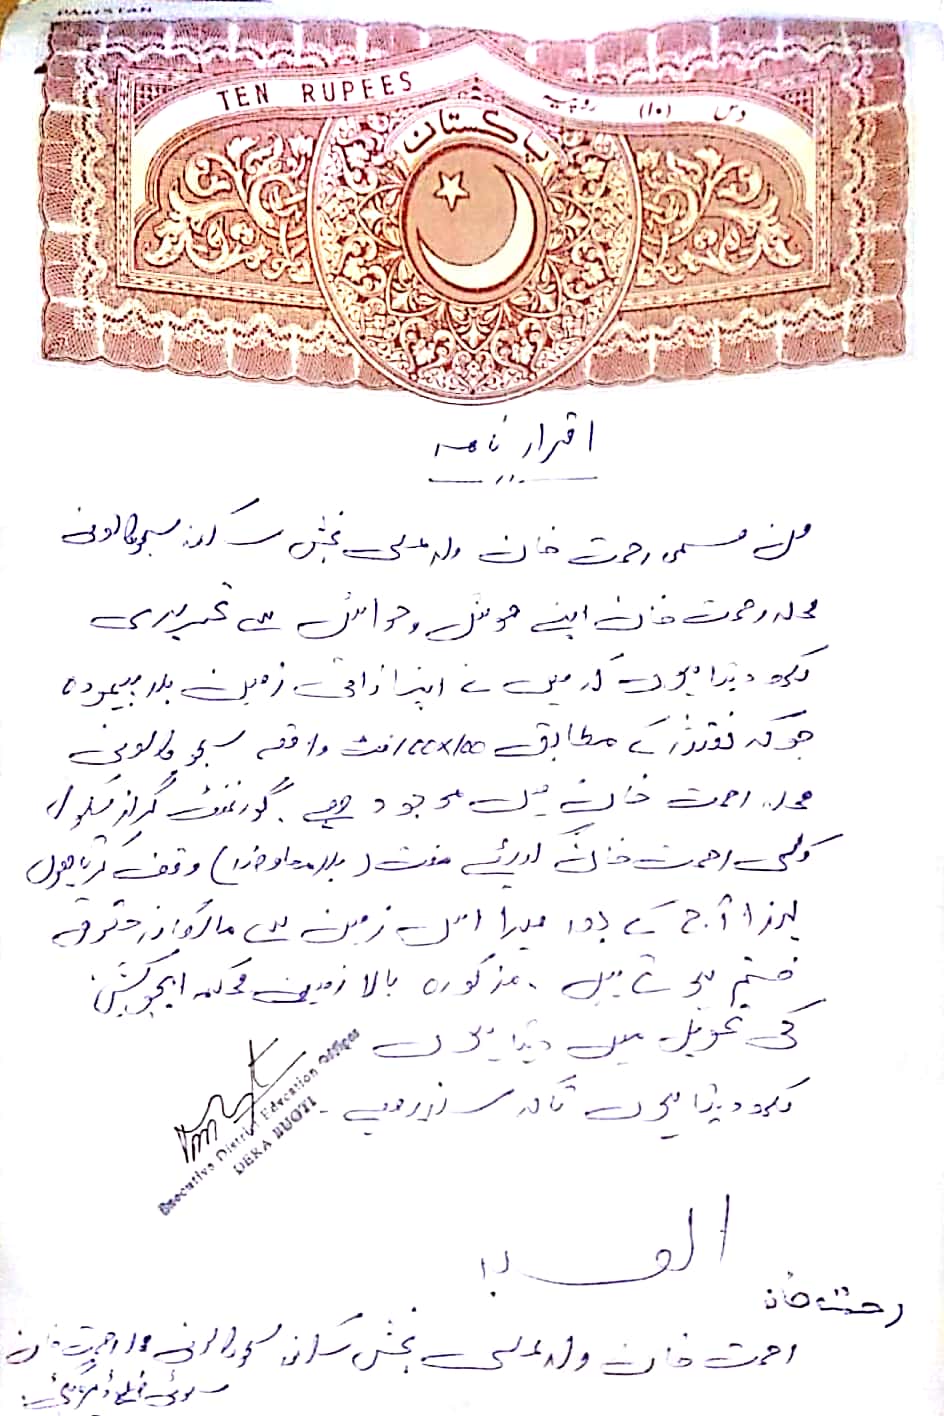 PAKISTAN
TEN RUPEES
دس (۱۰) روپیہ
پاکستان
اقرار نامہ
من مسمی رحمت خان ولد علی بخش سکنہ
محلہ رحمت خان اپنے ہوش و حواس سے تحریری
لکھ دیتا ہوں کہ میں نے اپنا ذاتی زمین
جو کہ نقشہ کے مطابق 100x100 فٹ واقع
محلہ رحمت خان میں موجود ہے۔ گورنمنٹ گرلز سکول
کلی رحمت خان کے لئے مفت (بلا معاوضہ) وقف کرتا ہوں
لہذا آج کے بعد میرا اس زمین سے مالکانہ حقوق
ختم ہوتے ہیں۔ مذکورہ بالا زمین محکمہ ایجوکیشن
کی تحویل میں دیتا ہوں
لکھ دیتا ہوں تاکہ سند رہے۔
Executive District Education Officer
DERA BUGTI
العبد
رحمت خان
رحمت خان ولد علی بخش سکنہ محلہ رحمت خان
سوئی ضلع ڈیرہ بگٹی